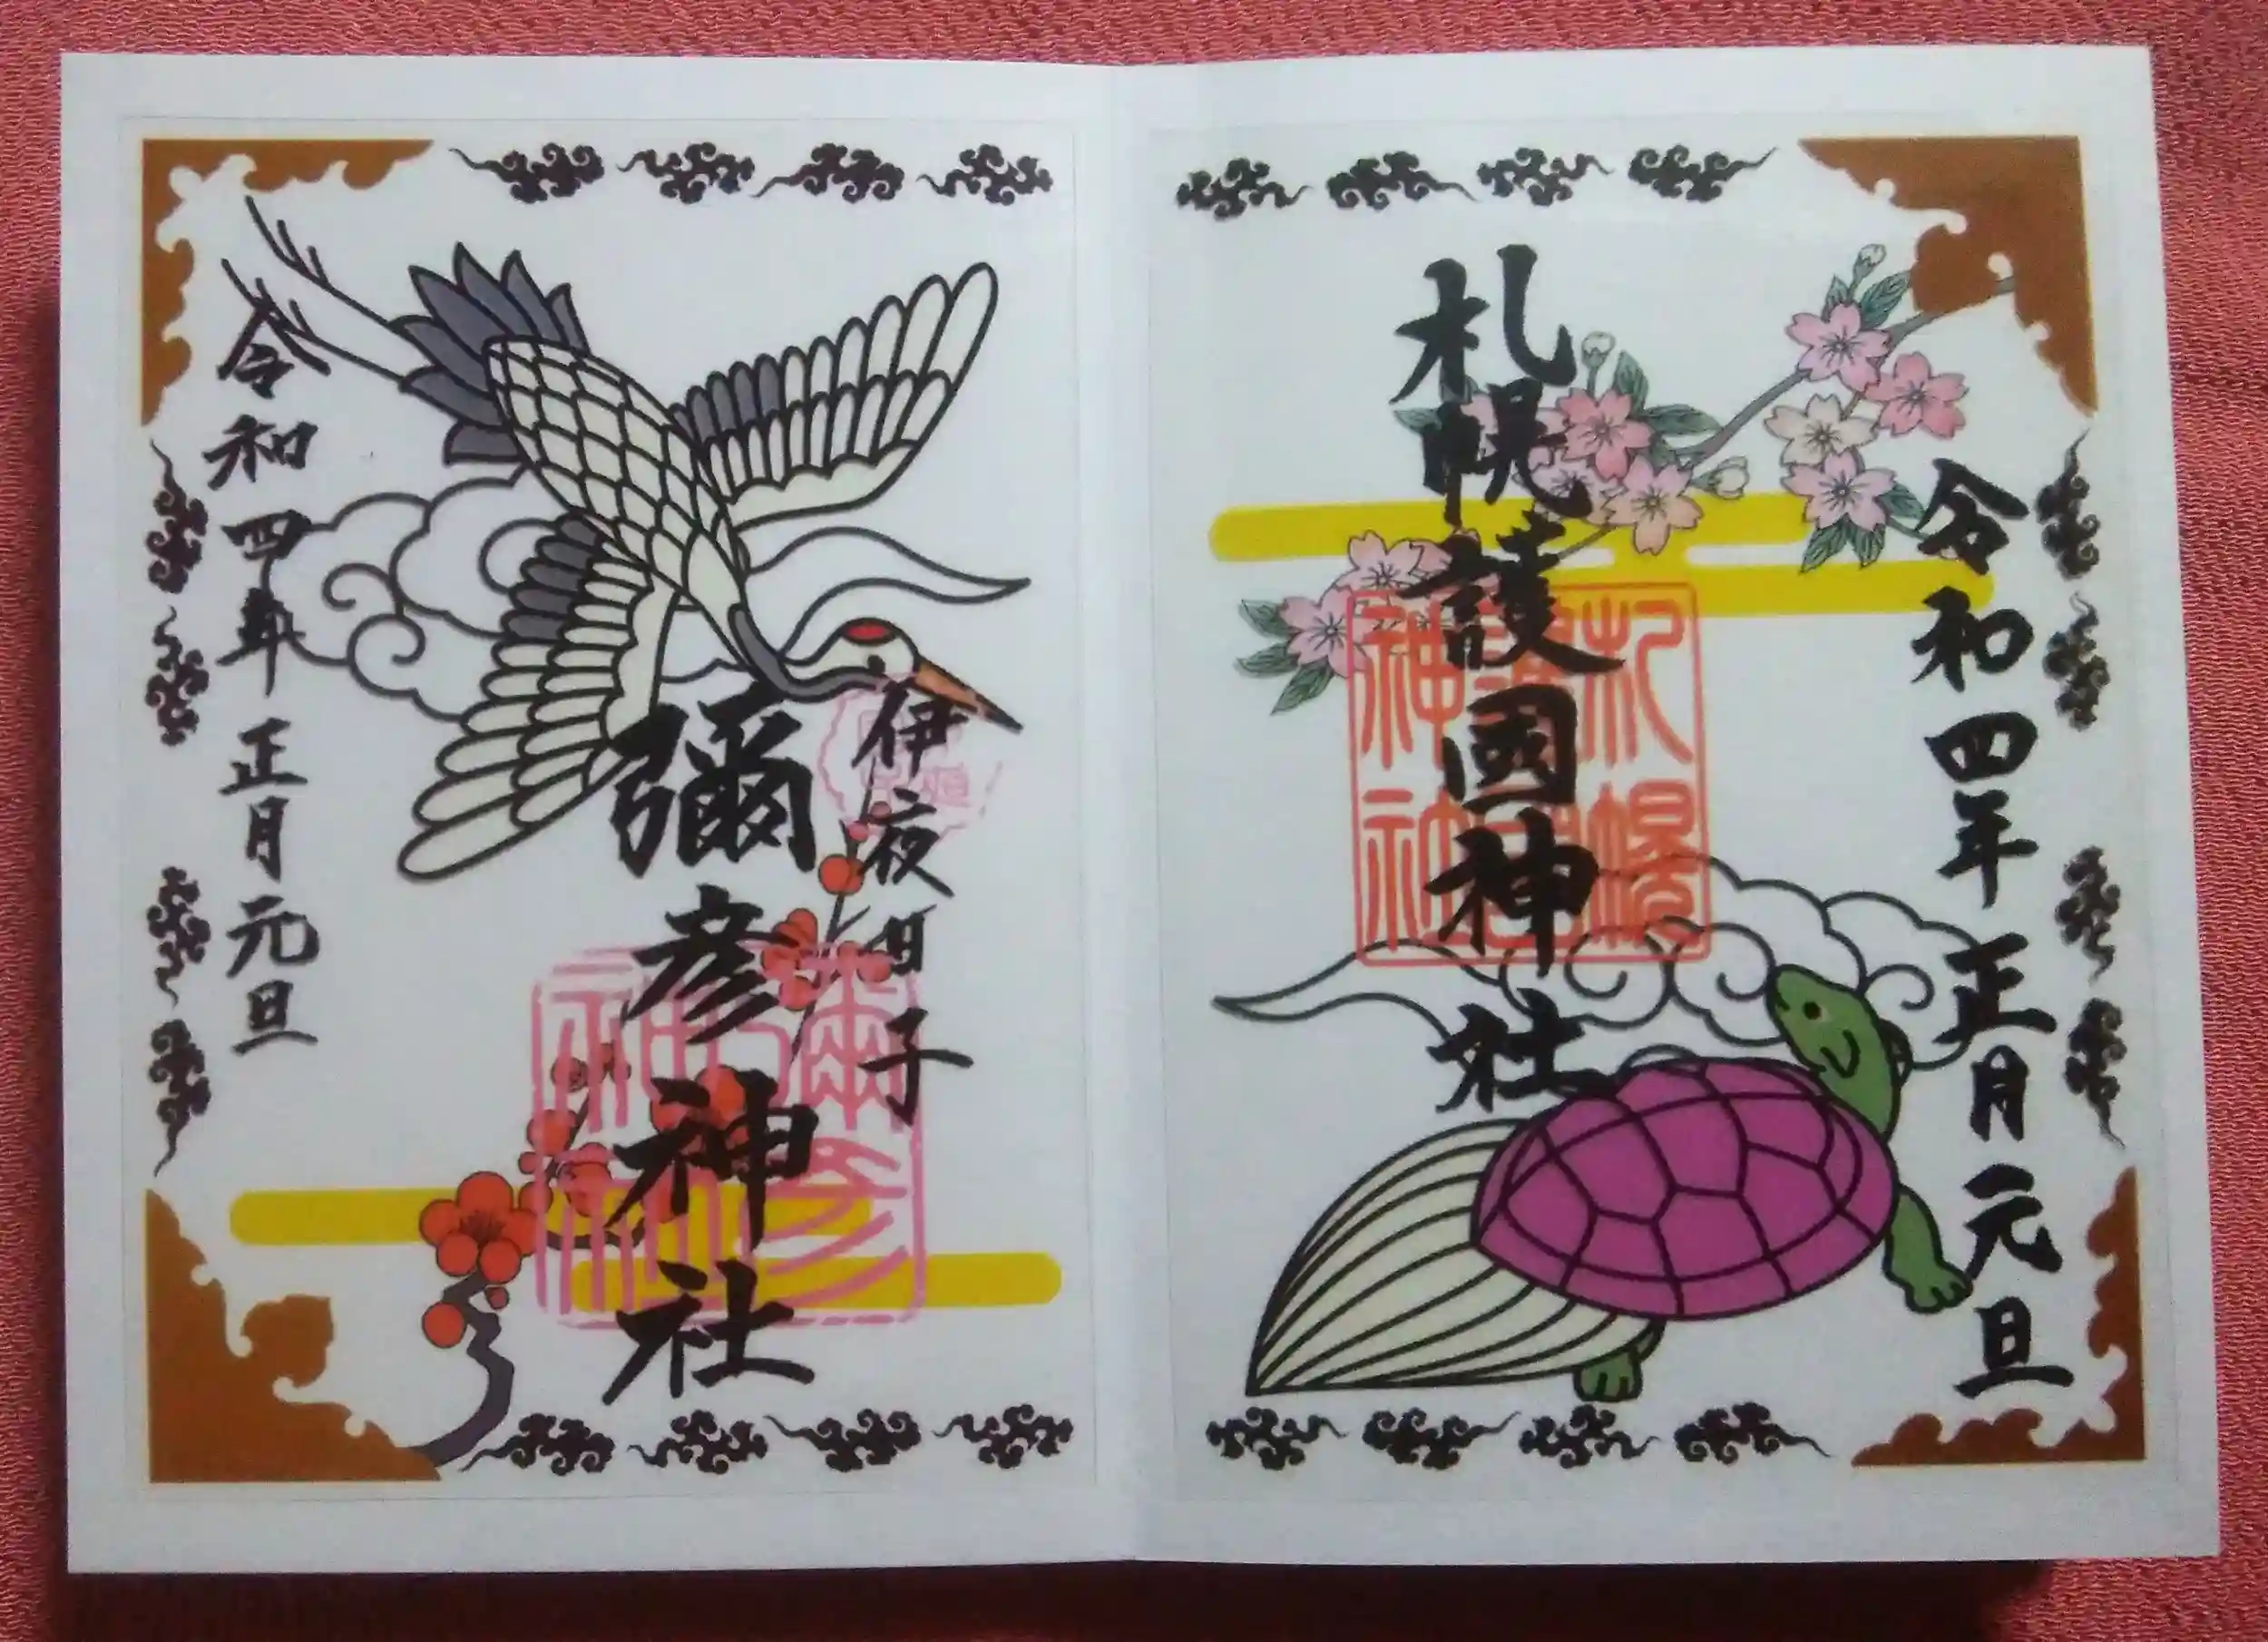 令和四年正月元旦
札幌護國神社
札幌護國神社
伊夜日子
彌彦神社
彌彦神社
令和四年正月元旦